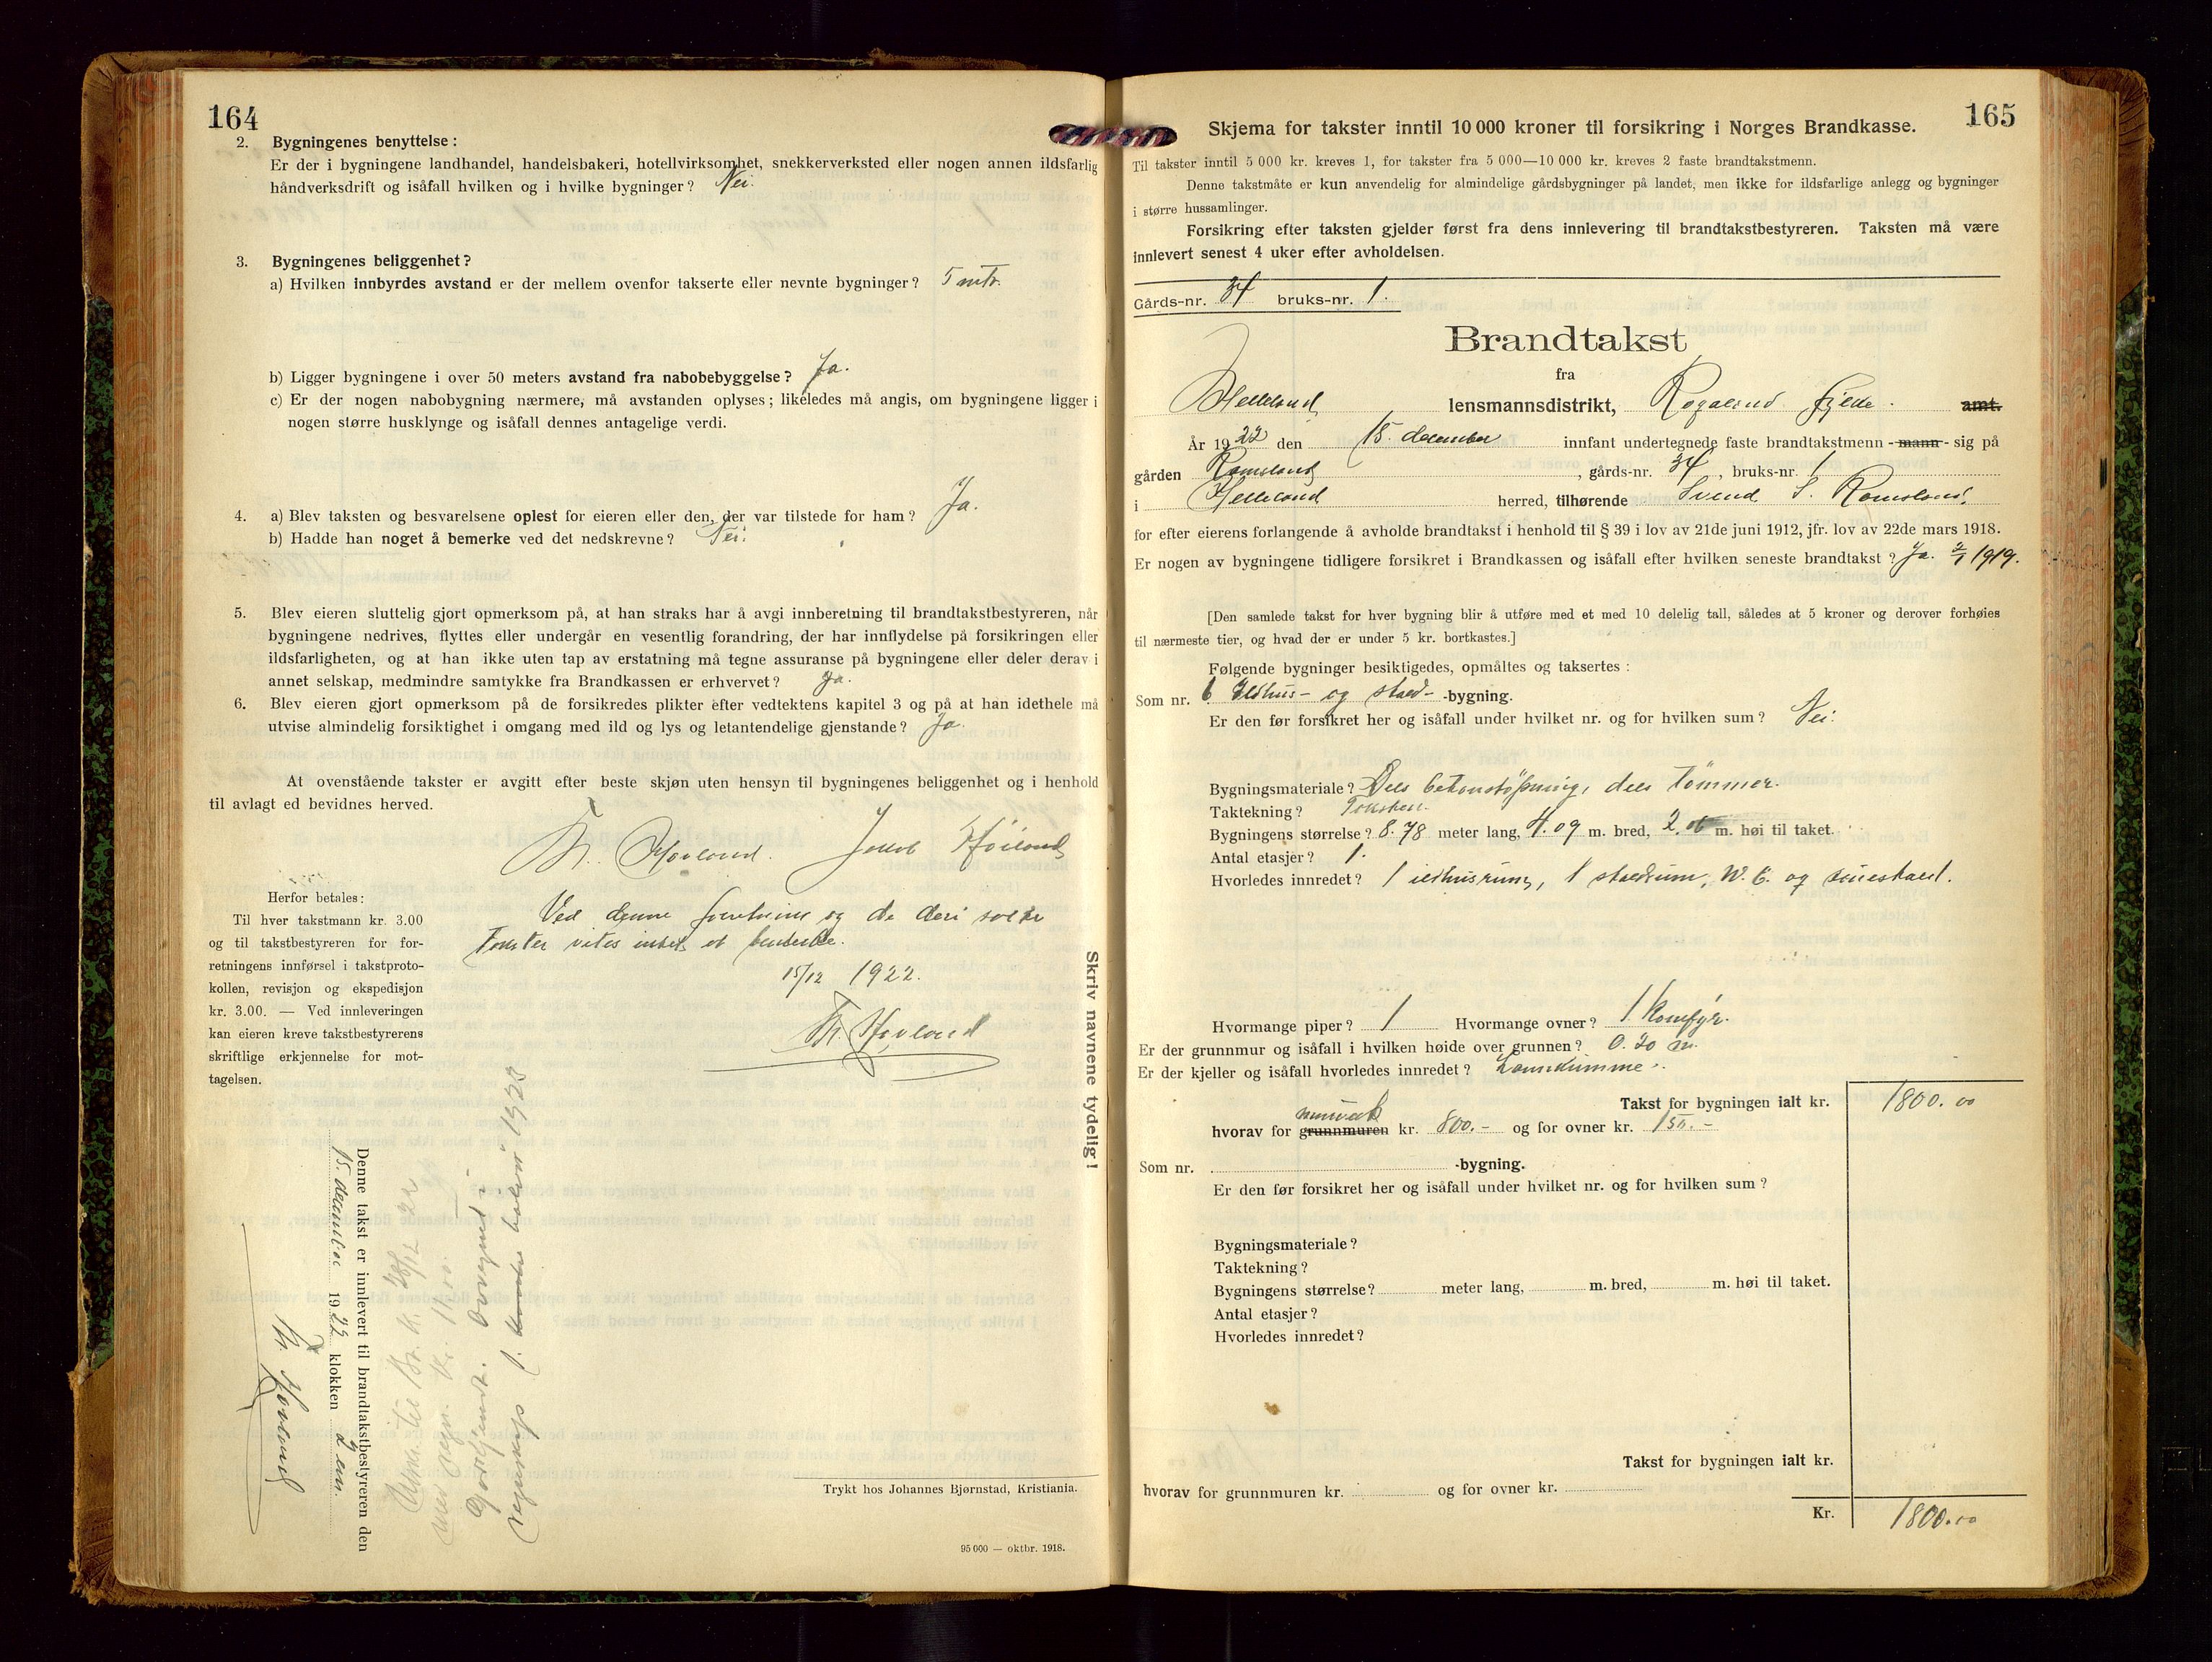 164
2. Bygningenes benyttelse:
Er der i bygningene landhandel, handelsbakeri, hotellvirksomhet, snekkerverksted eller nogen annen ildsfarlig
håndverksdrift og isåfall hvilken og i hvilke bygninger? Nei.
3. Bygningenes beliggenhet?
a) Hvilken innbyrdes avstand er der mellem ovenfor takserte eller nevnte bygninger? 5 mtr.
b) Ligger bygningene i over 50 meters avstand fra nabobebyggelse? Ja.
c) Er der nogen nabobygning nærmere, må avstanden oplyses; likeledes må angis, om bygningene ligger i
nogen større husklynge og isåfall dennes antagelige verdi.
4. a) Blev taksten og besvarelsene oplest for eieren eller den, der var tilstede for ham? Ja.
b) Hadde han noget å bemerke ved det nedskrevne? Nei.
5. Blev eieren sluttelig gjort opmerksom på, at han straks har å avgi innberetning til brandtakstbestyreren, når
bygningene nedrives, flyttes eller undergår en vesentlig forandring, der har innflydelse på forsikringen eller
ildsfarligheten, og at han ikke uten tap av erstatning må tegne assuranse på bygningene eller deler derav i
annet selskap, medmindre samtykke fra Brandkassen er erhvervet? Ja.
6. Blev eieren gjort opmerksom på de forsikredes plikter efter vedtektens kapitel 3 og på at han idethele må
utvise almindelig forsiktighet i omgang med ild og lys og letantendelige gjenstande? Ja.
At ovenstående takster er avgitt efter beste skjøn uten hensyn til bygningenes beliggenhet og i henhold
til avlagt ed bevidnes herved.
Th. Hovland. Jakob Høiland
Ved denne og de deri
Takster vites intet at bemerke.
15/12 1922.
Th. Hovland
Herfor betales:
Til hver takstmann kr. 3.00
og til takstbestyreren for for-
retningens innførsel i takstproto-
kollen, revisjon og ekspedisjon
kr. 3.00. — Ved innleveringen
kan eieren kreve takstbestyrerens
skriftlige erkjennelse for mot-
tagelsen.
Skriv navnene tydelig!
Denne takst er innlevert til brandtakstbestyreren den
15. december 1922 klokken 2 em.
Th. Hovland
til Br. k. 28/12 22
Godkjendt. Overgaaet i
regnskap 1. 1923
Trykt hos Johannes Bjørnstad, Kristiania.
95 000 — oktbr. 1918.
165
Skjema for takster inntil 10 000 kroner til forsikring i Norges Brandkasse.
Til takster inntil 5 000 kr. kreves 1, for takster fra 5 000—10 000 kr. kreves 2 faste brandtakstmenn.
Denne takstmåte er kun anvendelig for almindelige gårdsbygninger på landet, men ikke for ildsfarlige anlegg og bygninger
i større hussamlinger.
Forsikring efter taksten gjelder først fra dens innlevering til brandtakstbestyreren. Taksten må være
innlevert senest 4 uker efter avholdelsen.
Gårds-nr. 34 bruks-nr. 1.
Brandtakst
fra
Helleland lensmannsdistrikt, Rogaland fylke. amt.
År 1922 den 15. december innfant undertegnede faste brandtakstmenn - mann - sig på
gården Ramsland, gårds-nr. 34, bruks-nr. 1
i Helleland herred, tilhørende Svend S. Ramsland.
for efter eierens forlangende å avholde brandtakst i henhold til § 39 i lov av 21de juni 1912, jfr. lov av 22de mars 1918.
Er nogen av bygningene tidligere forsikret i Brandkassen og isåfall efter hvilken seneste brandtakst? Ja. 2/1 1919.
[Den samlede takst for hver bygning blir å utføre med et med 10 delelig tall, således at 5 kroner og derover forhøies
til nærmeste tier, og hvad der er under 5 kr. bortkastes.]
Følgende bygninger besiktigedes, opmåltes og taksertes:
Som nr. 6 Ildhus- og stald- -bygning.
Er den før forsikret her og isåfall under hvilket nr. og for hvilken sum? Nei.
Bygningsmateriale? Dels betonstøpning, dels tømmer.
Taktekning? Taksten.
Bygningens størrelse? 8.78 meter lang, 4.09 m. bred, 2.06 m. høi til taket.
Antal etasjer? 1.
Hvorledes innredet? 1 ildhusrum, 1 staldrum, W. C. og
Hvormange piper? 1 Hvormange ovner? 1 komfyr.
Er der grunnmur og isåfall i hvilken høide over grunnen? 0.20 m.
Er der kjeller og isåfall hvorledes innredet?
Takst for bygningen ialt kr. 1800.00
murverk
hvorav for grunnmuren kr. 800.- og for ovner kr. 150.-
Som nr. -bygning.
Er den før forsikret her og isåfall under hvilket nr. og for hvilken sum?
Bygningsmateriale?
Taktekning?
Bygningens størrelse? meter lang, m. bred, m. høi til taket.
Antal etasjer?
Hvorledes innredet?
Takst for bygningen ialt kr.
hvorav for grunnmuren kr. og for ovner kr.
Kr. 1800.00